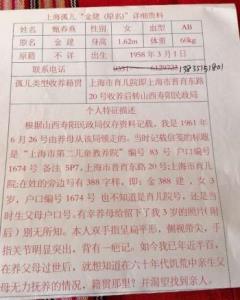 上海孤儿“金建(原名)”详细资料
姓名 甄春燕 性别 女 血型 AB
原名 金建 身高 1.62m 体重 60kg
原籍 不详 出生 1958年3月1日
联系电话
孤儿类型收养籍贯 上海市育儿院即上海市普育东路
20号收养后转山西寿阳民政局
个人特征描述
根据山西寿阳民政局仅存资料记载,我是1961年
6月26号由养母从该局领走的。当时记载信笺的标题
是“上海市第二儿童教养院”编号83号 户口编号
1674号 备注5P7,上海市普育东路20号;上海市育儿
院;在姓的旁边写有388字样,即:金388建,女3
岁,户口编号1674号 也不知道是育儿院号,还是当
时生父母户口号。有幸养母给留下了我3岁的照片(附
后)别无所知。本人双手指呈扁形,侧视带尖,手
指关节明显突出,背有一疤记。如今我已年近半百,
在养父母过世后,就想知道在六十年代饥荒中亲生父
母无力抚养的情况,籍贯那里?并渴望找到亲人。